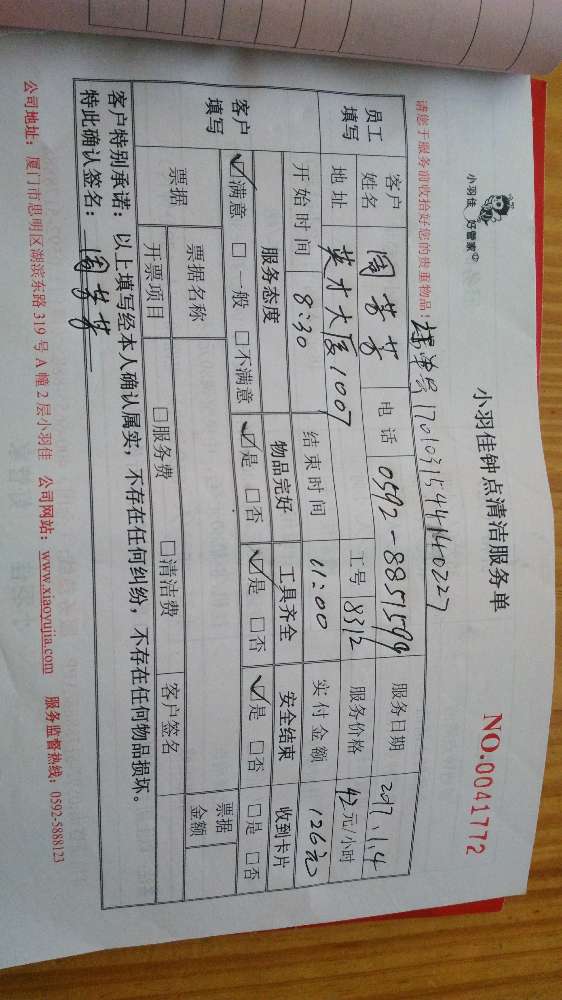 小羽佳 好管家
小羽佳钟点清洁服务单
NO.0041772
请您于服务前收拾好您的贵重物品!
1701031544140227
员工填写 客户姓名 周芳芳 电话 0592-8851599 服务日期 2017.1.4
地址 英才大厦1007 工号 8312 服务价格 42元/小时
开始时间 8:30 结束时间 11:00 实付金额 126元
客户填写 服务态度 物品完好 工具齐全 安全结束 收到卡片
☑满意 □一般 □不满意 ☑是 □否 ☑是 □否 ☑是 □否 □是 □否
票据 票据名称 票据金额
开票项目 □服务费 □清洁费 客户签名
客户特别承诺:以上填写经本人确认属实,不存在任何纠纷,不存在任何物品损坏。
特此确认签名:周芳芳
公司地址:厦门市思明区湖滨东路319号A幢2层小羽佳 公司网站:www.xiaoyujia.com 服务监督热线:0592-5888123